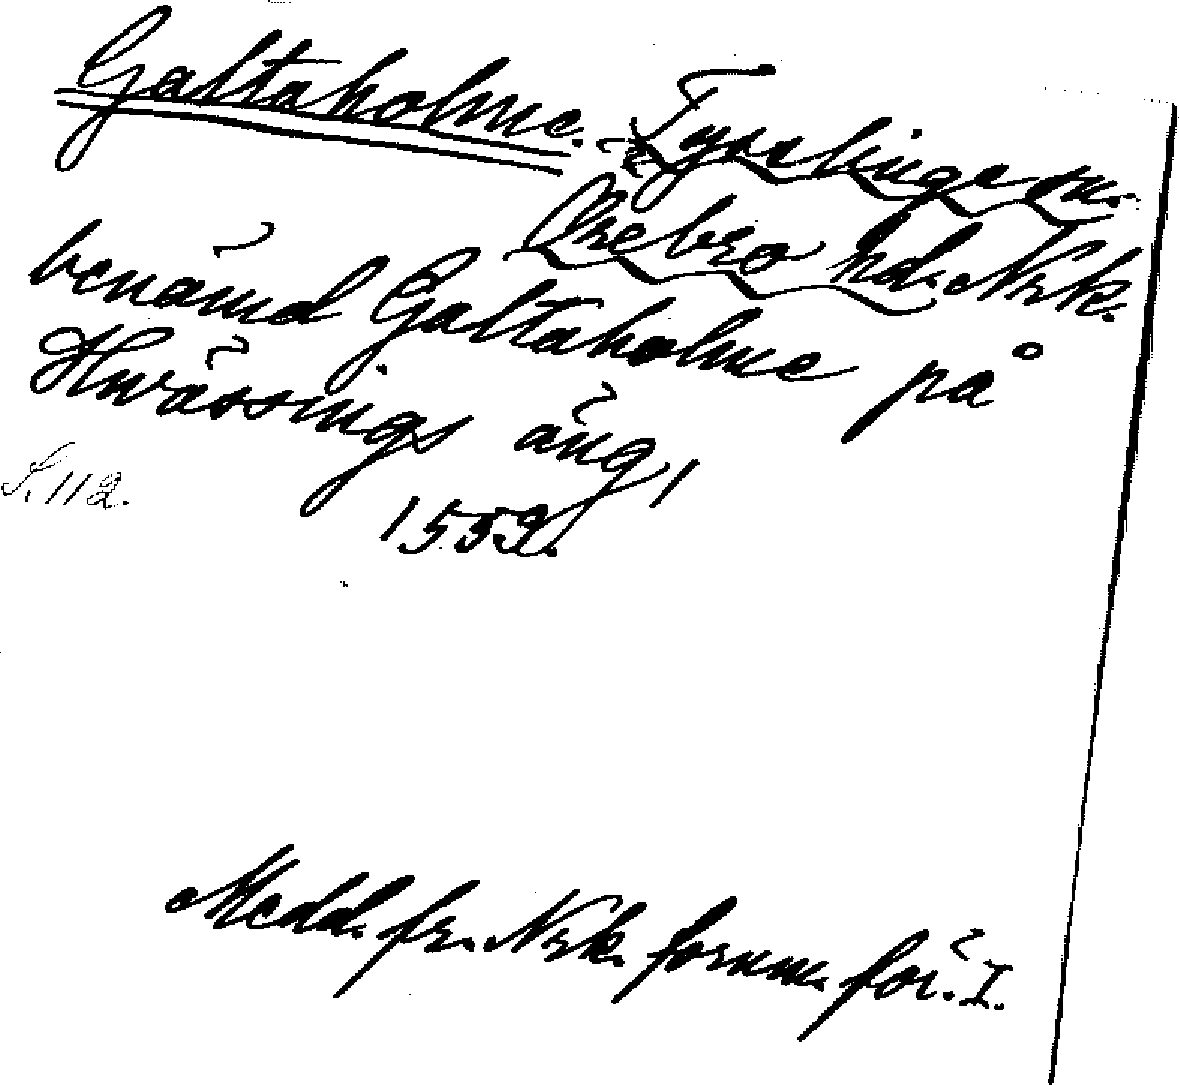 Galtaholme. Tysslinge sn.
Örebro hd. Nrk.
benämd Galtaholme på
Hwässings äng,
S. 112.
1552.
Medd. fr. Nrk. fornm. för. I.